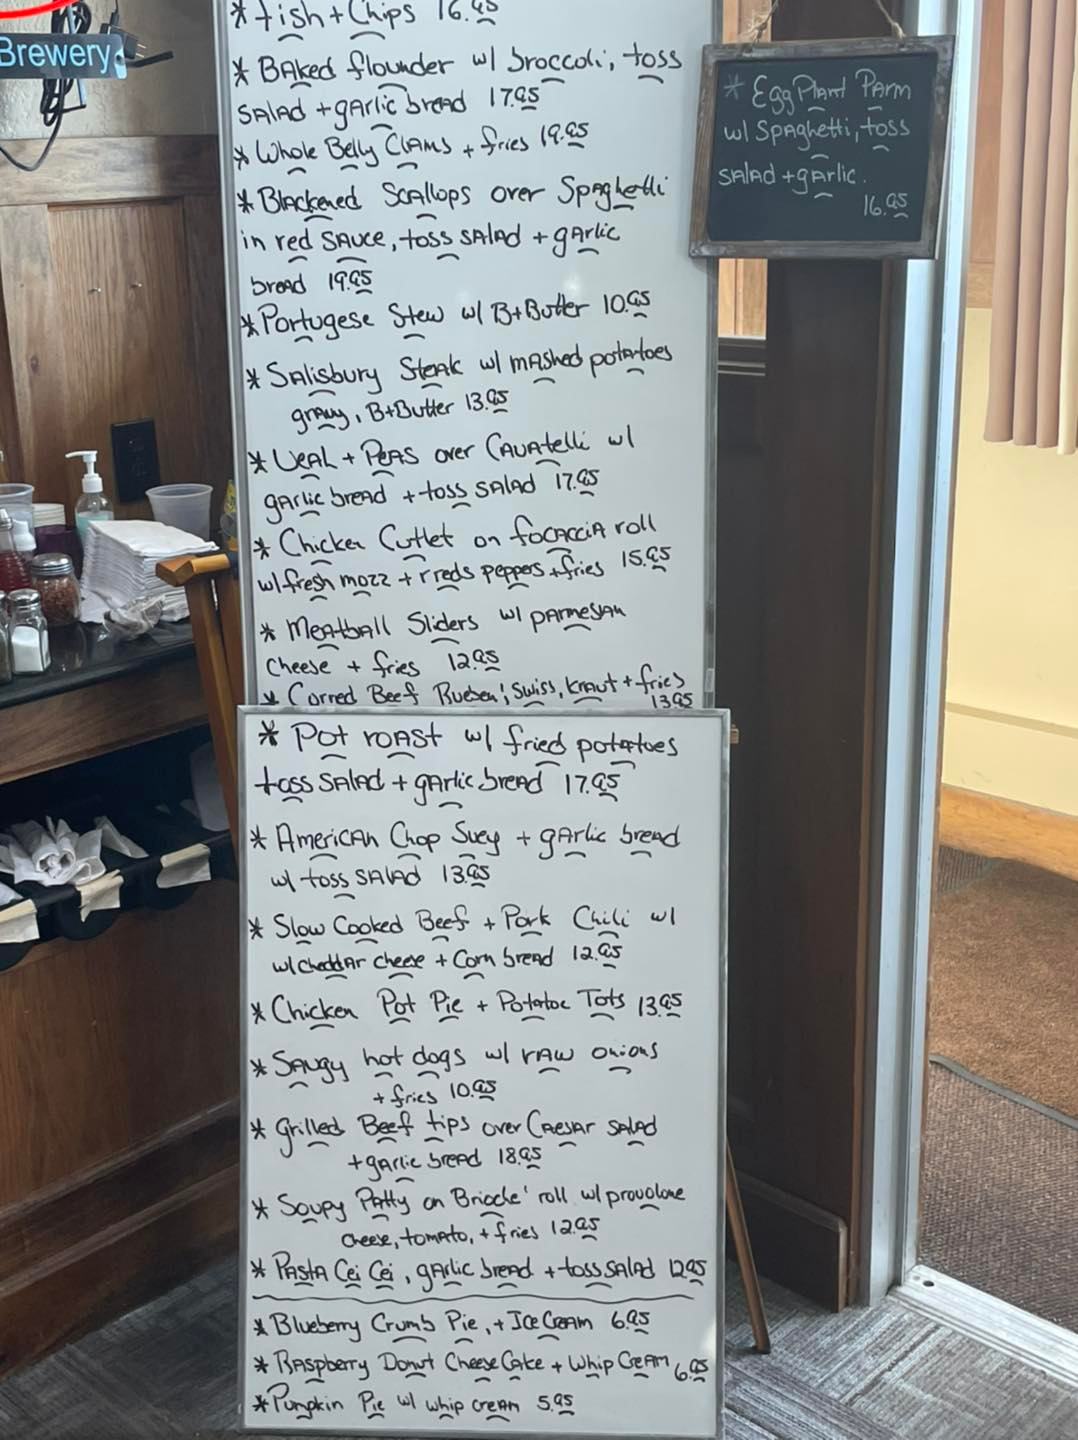 Brewery
* Fish + Chips 16.95
* Baked flounder w/ broccoli, toss
salad + garlic bread 17.95
* Whole Belly Clams + fries 19.95
* Blackened Scallops over Spaghetti
in red sauce, toss salad + garlic
bread 19.95
* Portugese Stew w/ B+Butter 10.95
* Salisbury Steak w/ mashed potatoes
gravy, B+Butter 13.95
* Veal + Peas over Cavatelli w/
garlic bread + toss salad 17.95
* Chicken Cutlet on focaccia roll
w/ fresh mozz + r reds peppers + fries 15.95
* Meatball Sliders w/ parmesan
cheese + fries 12.95
* Corred Beef Rueben, Swiss, kraut + fries
13.95
* Pot roast w/ fried potatoes
toss salad + garlic bread 17.95
* American Chop Suey + garlic bread
w/ toss salad 13.95
* Slow Cooked Beef + Pork Chili w/
w/ cheddar cheese + Corn bread 12.95
* Chicken Pot Pie + Potatoe Tots 13.95
* Saugy hot dogs w/ raw onions
+ fries 10.95
* Grilled Beef tips over Caesar salad
+ garlic bread 18.95
* Soupy Patty on Brioche' roll w/ provolone
cheese, tomato, + fries 12.95
* Pasta Cei Cei, garlic bread + toss salad 12.95
* Blueberry Crumb Pie, + Ice Cream 6.95
* Raspberry Donut Cheese Cake + Whip Cream 6.95
* Pumpkin Pie w/ whip cream 5.95
* Egg Plant Parm
w/ Spaghetti, toss
salad + garlic.
16.95